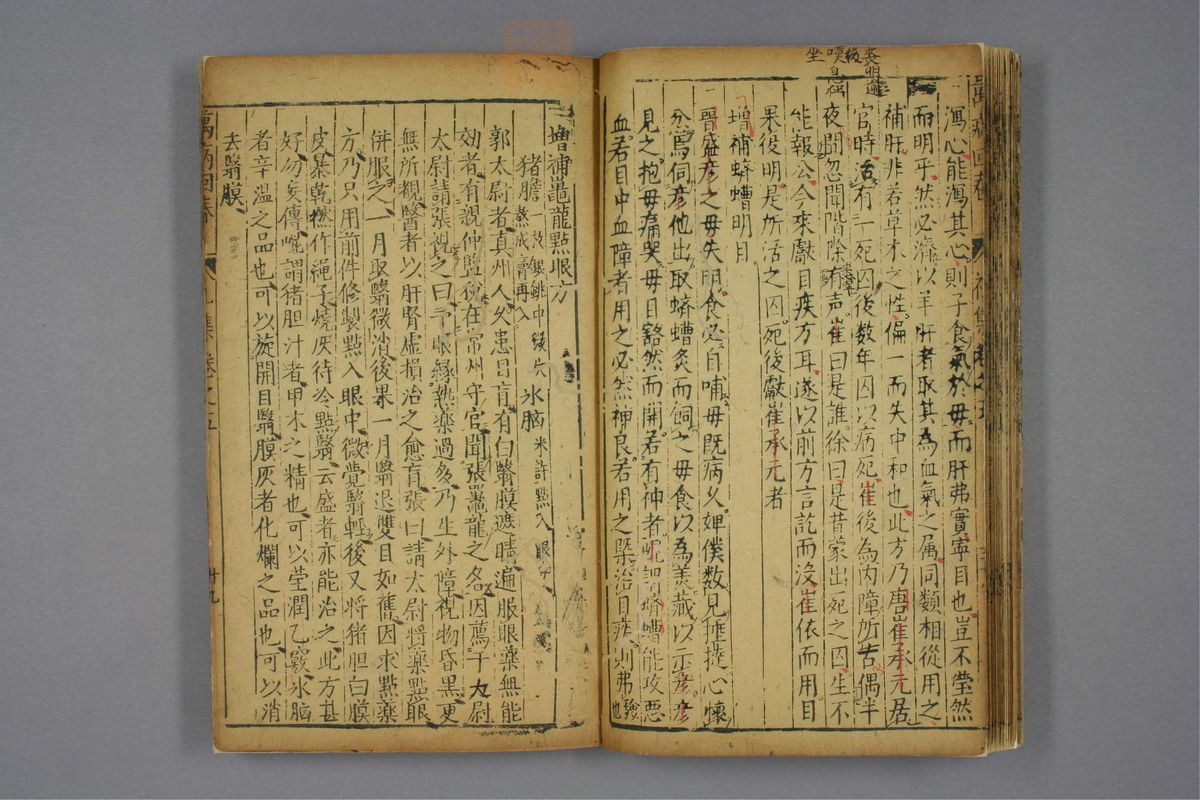 喪明逾
後
嘆息獨
坐
瀉心能瀉其心則子食氣於毋而肝弗實寧目也豈不瑩然
而明乎然必濟以羊肝者取其為血氣之属同類相從用之
補肝非若草木之性偏一而失中和也此方乃唐崔承元居
官時治有一死囚後数年囚以病死崔後為内障所苦偶半
夜間忽聞階除有声崔曰是誰徐曰是昔蒙出死之囚生不
能報公今來獻目疾方耳遂以前方言訖而没崔依而用目
果復明是所活之囚死後獻崔承元者
增補蠐螬明目
晉盛彦之毋失明食必自哺毋既病乆婢僕数見捶撻心懷
忿焉伺彦他出取蠐螬炙而飼之毋食以為羙藏以示彦彦
見之抱毋痛哭毋目豁然而開若有神者呢謂蠐螬能攻惡
血若目中血障者用之必然神良若用之槩治目疾則弗驗也
萬病回春
八
增補鼉龍點眼方
猪膽一枚銀銚中鎔片熬成膏再入氷脑米許點入眼中
郭太尉者真州人乆患目盲有白翳膜遮晴遍服眼藥無能
効者有親仲監税在常州守官聞張鼉龍之名因薦于太尉
太尉請張視之曰予眼緣熱藥過多乃生外障視物昏黑更
無所覩醫者以肝腎虛損治之愈盲張曰請太尉將藥點眼
併服之一月取翳微消後果一月翳退雙目如舊因求點藥
方乃只用前件修製點入眼中微覺翳輕後又將猪胆白膜
皮暴乾撚作繩子燒灰待冷點翳云盛者亦能治之此方甚
好勿妄傳崐謂猪胆汁者甲木之精也可以瑩潤乙竅氷脑
者辛温之品也可以旋開目翳膜灰者化爛之品也可以消
去翳膜
萬病回春
八
九集卷之五
廿九